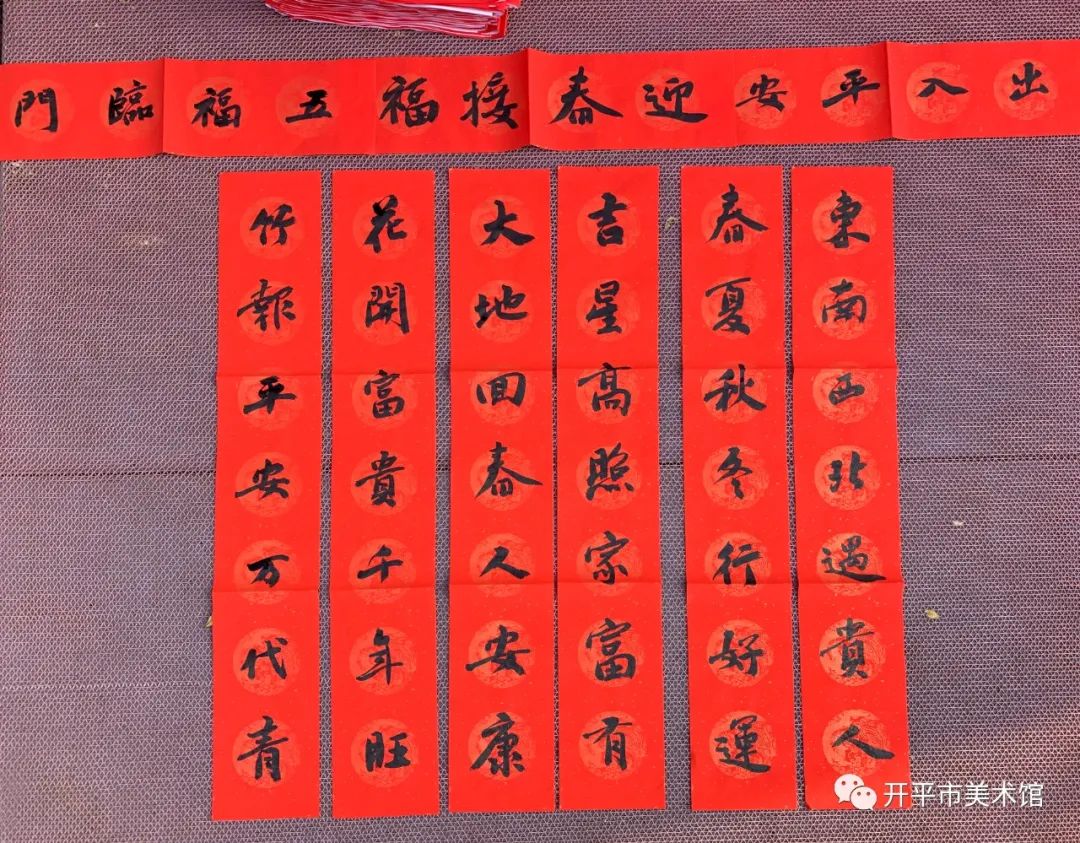 出入平安
迎春接福
五福臨門
東南西北遇貴人
春夏秋冬行好運
吉星高照家富有
大地回春人安康
花開富貴千年旺
竹報平安万代青
开平市美术馆